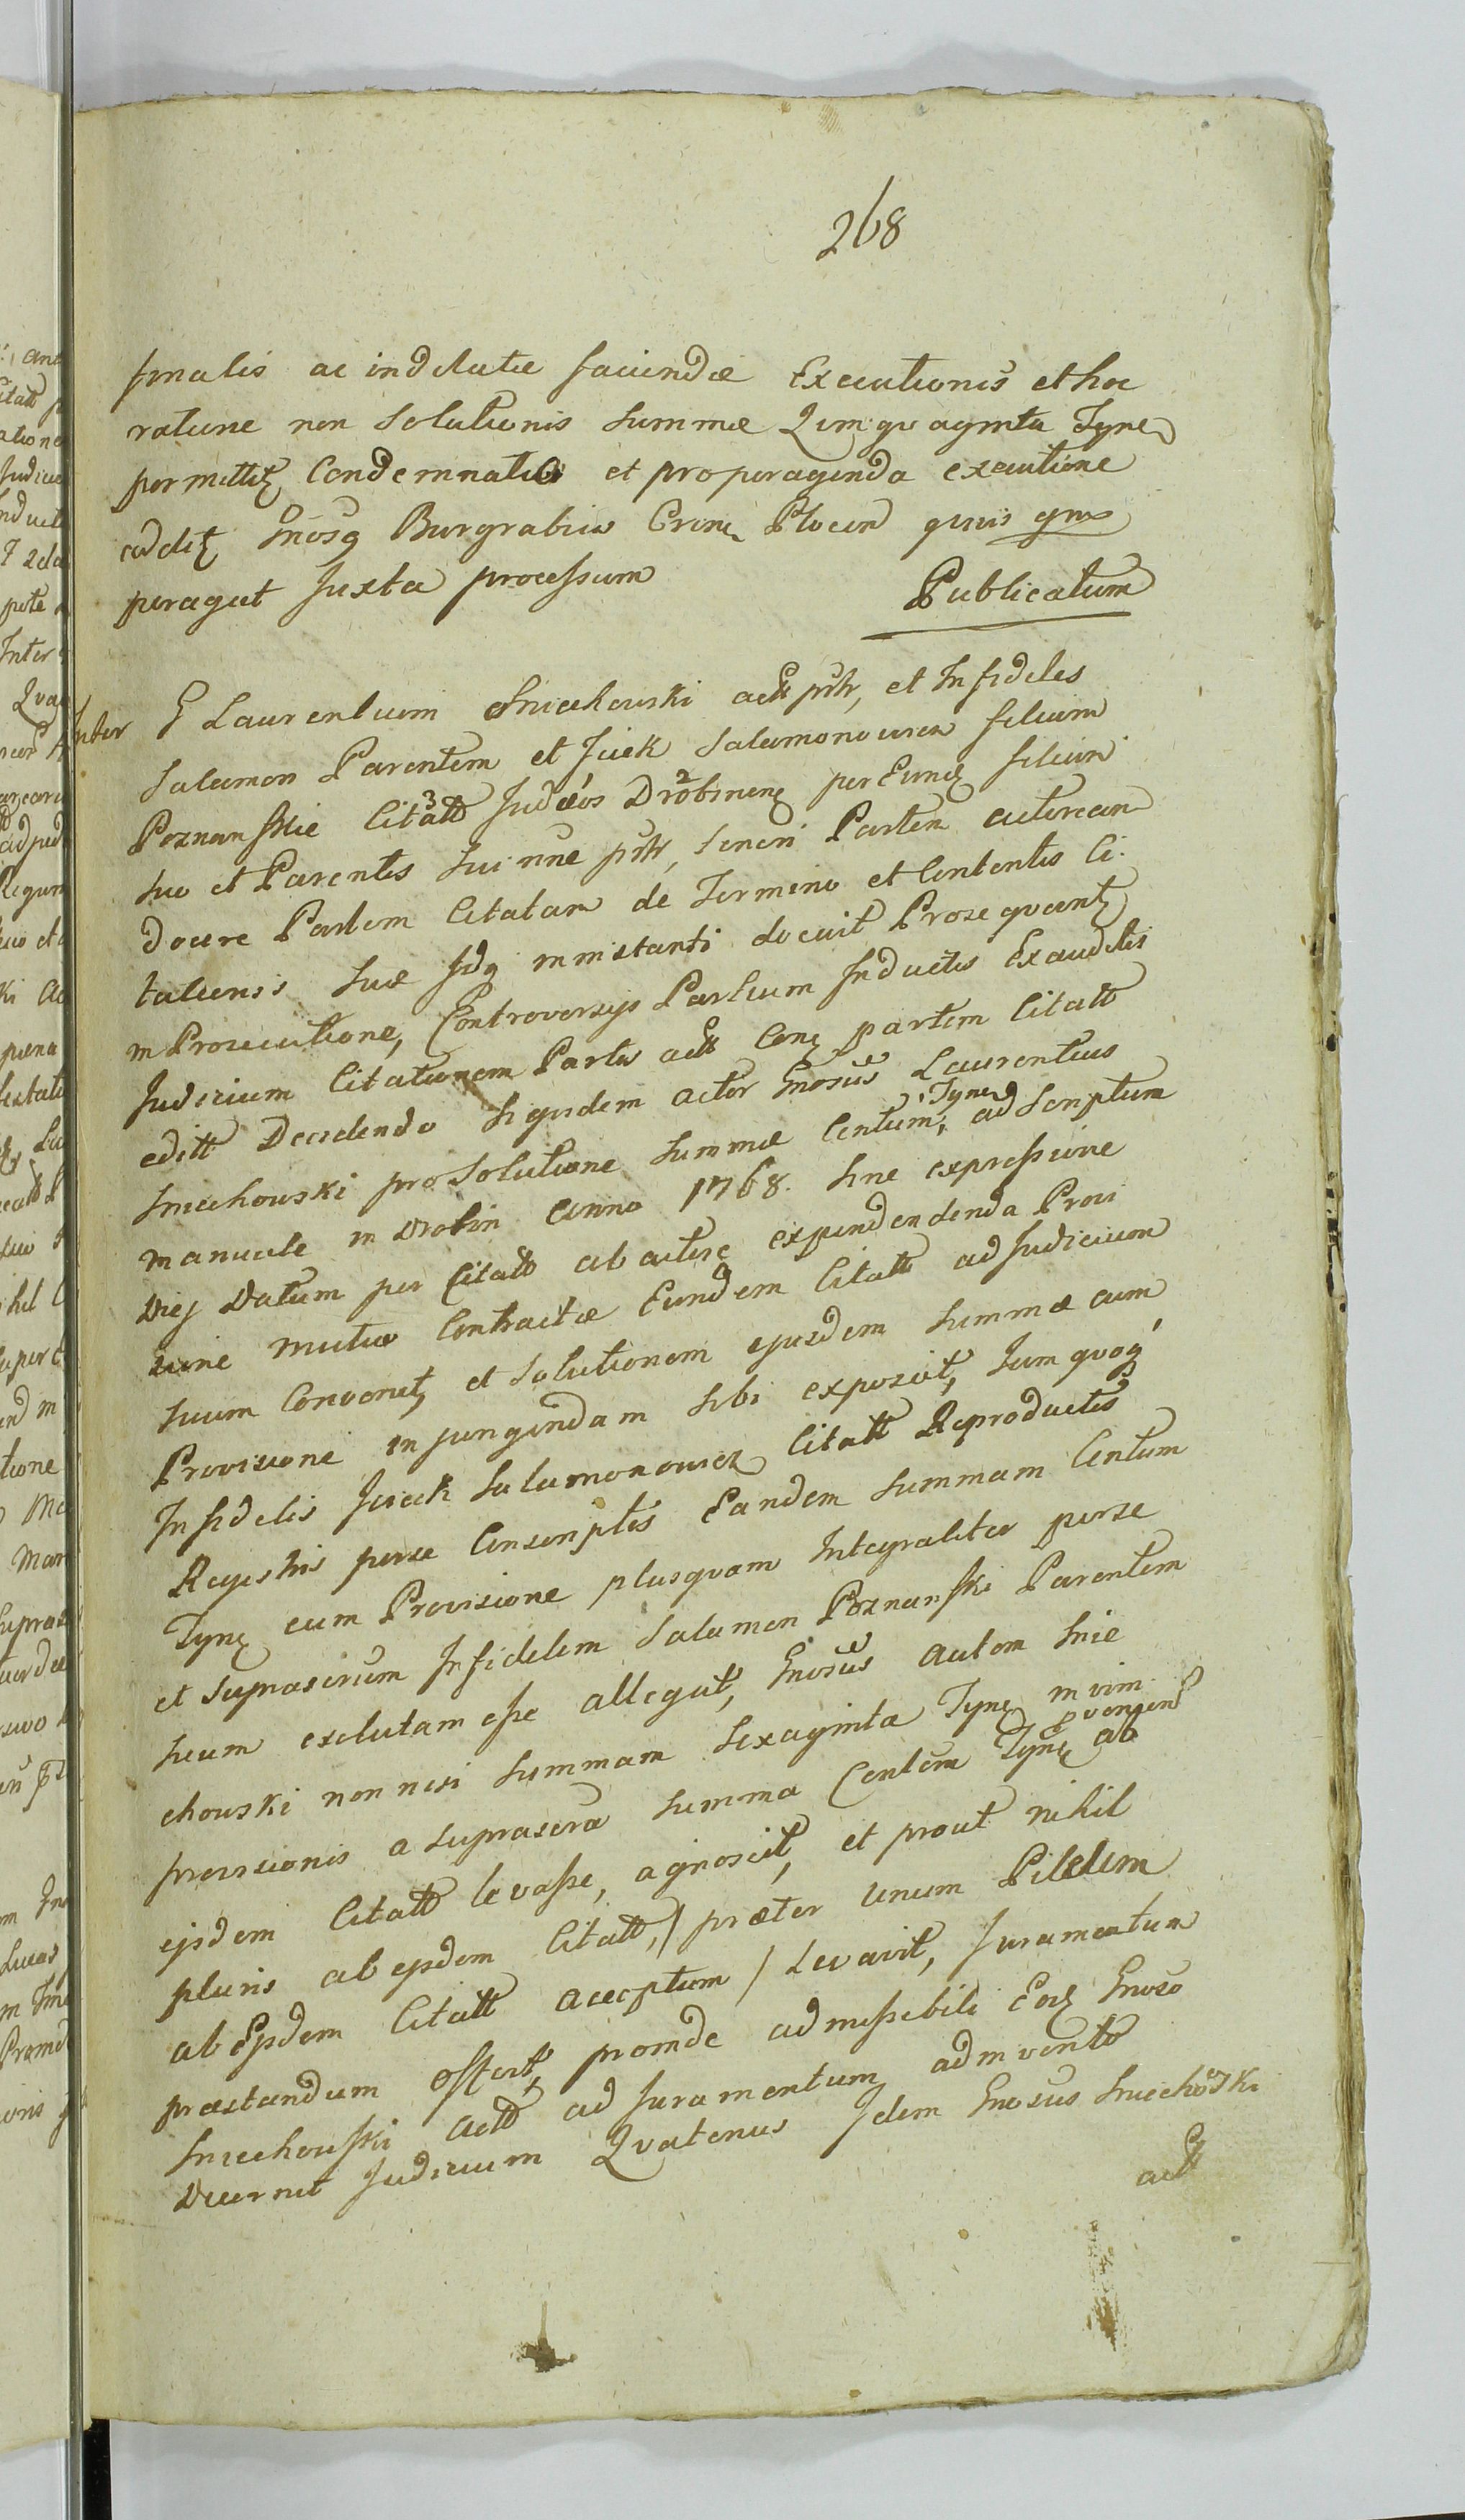 268
finalis ac indilatæ faciendæ Executionis et hoc
ratione non Solutionis Summæ Quinquaginta Tyne
permittit Condemnatio et pro peragenda executione
addit Gnosq Burgrabios Crone Plocen quivis gnos
peragat Juxta processum
Publicatum
Inter G Laurentium Sniechowski act pntr, et Infideles
Salamon Parentem et Jcek Salamonowicz filium
Poznanskie Citatt Judæos Drobinen per Eund filium
suo et Parentis Sui nne pntr, Seneri Partem actoream
docere Partem Citatam de Termino et Contentis Ci-
tationis Suæ Idq ministanti docuit Prosequent
in Prosecutione, Controversijs Partium Inductis Exauditis
Judicium Citationem Partis act Conq partem Citatt
editt Decidendo Siquidem actor Gnosus Laurentius
Sniechowski pro Solutione Summæ Centum, Tyne ad Scriptum
manuale in Drobin anno 1768. Sine expressione
Diej Datum per Citatt ab actore expendendenda Provi
sione mutuo Contractæ Eundem Citatt ad Judicium
suum Convenit, et Solutionem ejusdem Summæ cum
Provisione injungendam sibi exposcit, Tum quoq
Infidelis Jcek Salamonowicz Citatt Reproductis
Regestris per se Conscriptis Eandem Summam Centum
Tyne cum Provisione plusquam Integraliter per se
et Suprascrum Infidelem Salamon Poznanski Parentem
suum exolutam esse allegat, Gnosus autem Snie
chowski non nisi Summam Sexaginta Tyne in vim
provisionis a Suprascra Summa Centum Tyne provenien ab
ejsdem Citatt levasse, agnoscit, et prout nihil
pluris ab ejsdem Citatt, / præter unum Pileum
ab Ejsdem Citatt acceptum / Levavit, Juramentum
præstandum offert, proinde admissibili Eod Gnoso
Sniechowski actt ad Juramentum adinvento
Decernit Judicium Quatenus Idem Gnosus Sniechowski
act